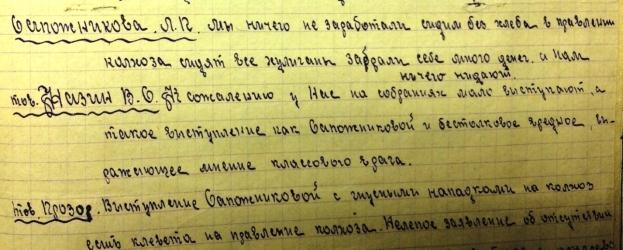 Сапожникова. Л.П. Мы ничего не заработали сидим без хлеба в правлении
колхоза сидят все жулигани забрали себе много денег. и нам
ничего нидают.
тов. Назин В.С. К сожалению у нас на собраниях мало выступают, а
такое выступление как Сапожниковой и бестолковое вредное, вы-
ражающее мнение классового врага.
тов Прозор. Выступление Сапожниковой с гнусными нападками на колхоз
есть клевета на правление колхоза. Нелепое заявление об отсутствии